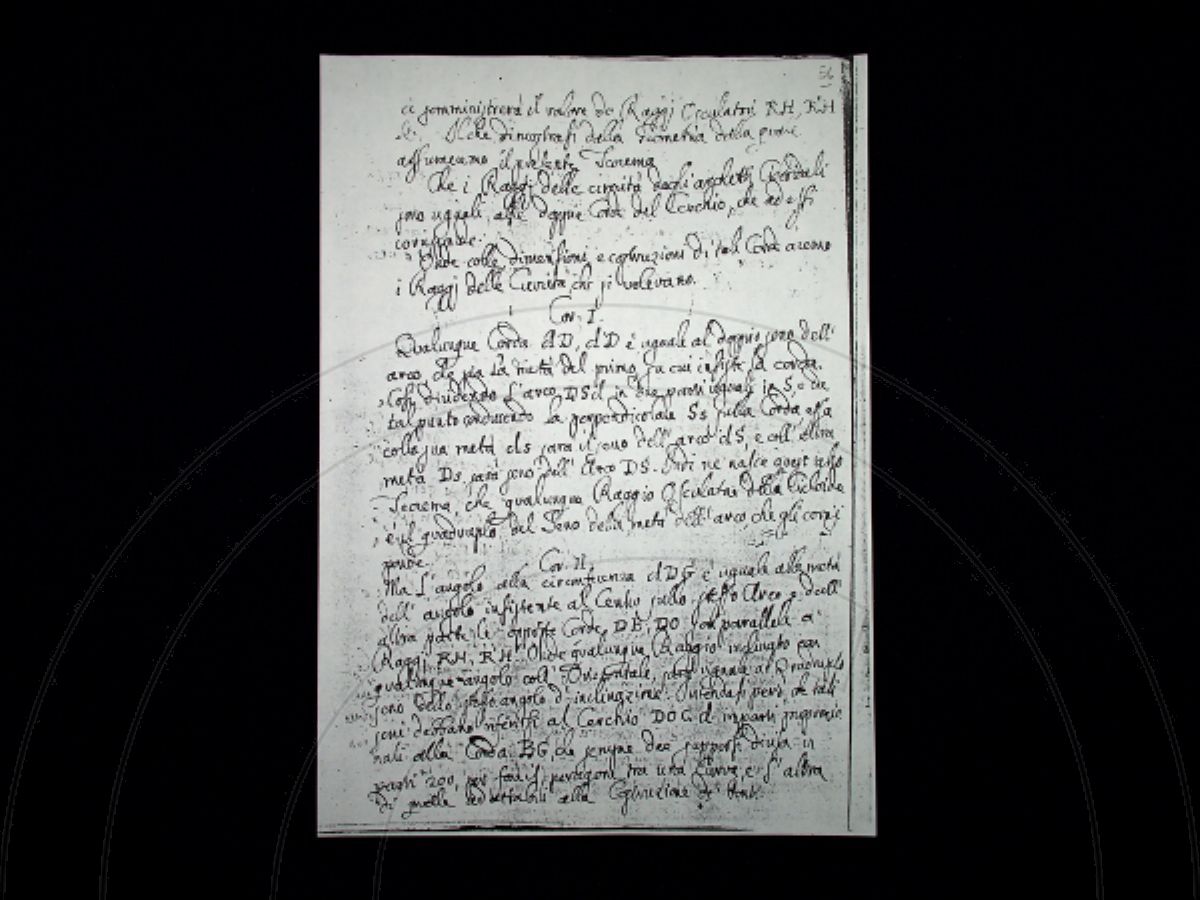 56
ci somministrerà il valore de Raggj Osculatori RH, RH
&c. Il che dimostrasi dalla Geometria della quale
assumeremo il presente Teorema
Che i Raggj delle curvità degli archetti Cicloidali
sono uguali alle doppie Corde del Cerchio, che ad essi
corrisponde.
Onde colle dimensioni e costruzioni di tali Corde aremo
i Raggj delle Curvità che si volevano.
Cor. I.
Qualunque Corda dD, dD è uguale al doppio seno dell'
arco che sia la metà del primo su cui insiste la corda.
Così dividendo l'arco DSd in due parti uguali in S, e da
tal punto conducendo la perpendicolare Ss sulla Corda, essa
colla sua metà ds sarà il seno dell' arco dS, e coll' altra
metà Ds sarà seno dell' Arco DS. Indi ne nasce quest' altro
Teorema, che qualunque Raggio Osculator della Cicloide
è il quadruplo del Seno della metà dell' arco che gli corris
ponde.
Cor. II.
Ma l'angolo alla circonferenza dDG è uguale alla metà
dell' angolo insistente al Centro sullo stesso Arco e dall'
altra parte le opposte Corde DE, DO son parallele a'
Raggj RH, RH. Onde qualunque Raggio inclinato con
qualunque angolo coll' Orizontale, sarà uguale al Quadruplo
seno dello stesso angolo d'inclinazione. Intendasi però che tali
seni debbano riferirsi al Cerchio DOG d in parti proporzio
nali alla Corda BG, che sempre dee supporsi divisa in
parti 200, per farsi paragone tra una Curva, e l' altra
di quelle adattabili alla Costruzione de' Ponti.